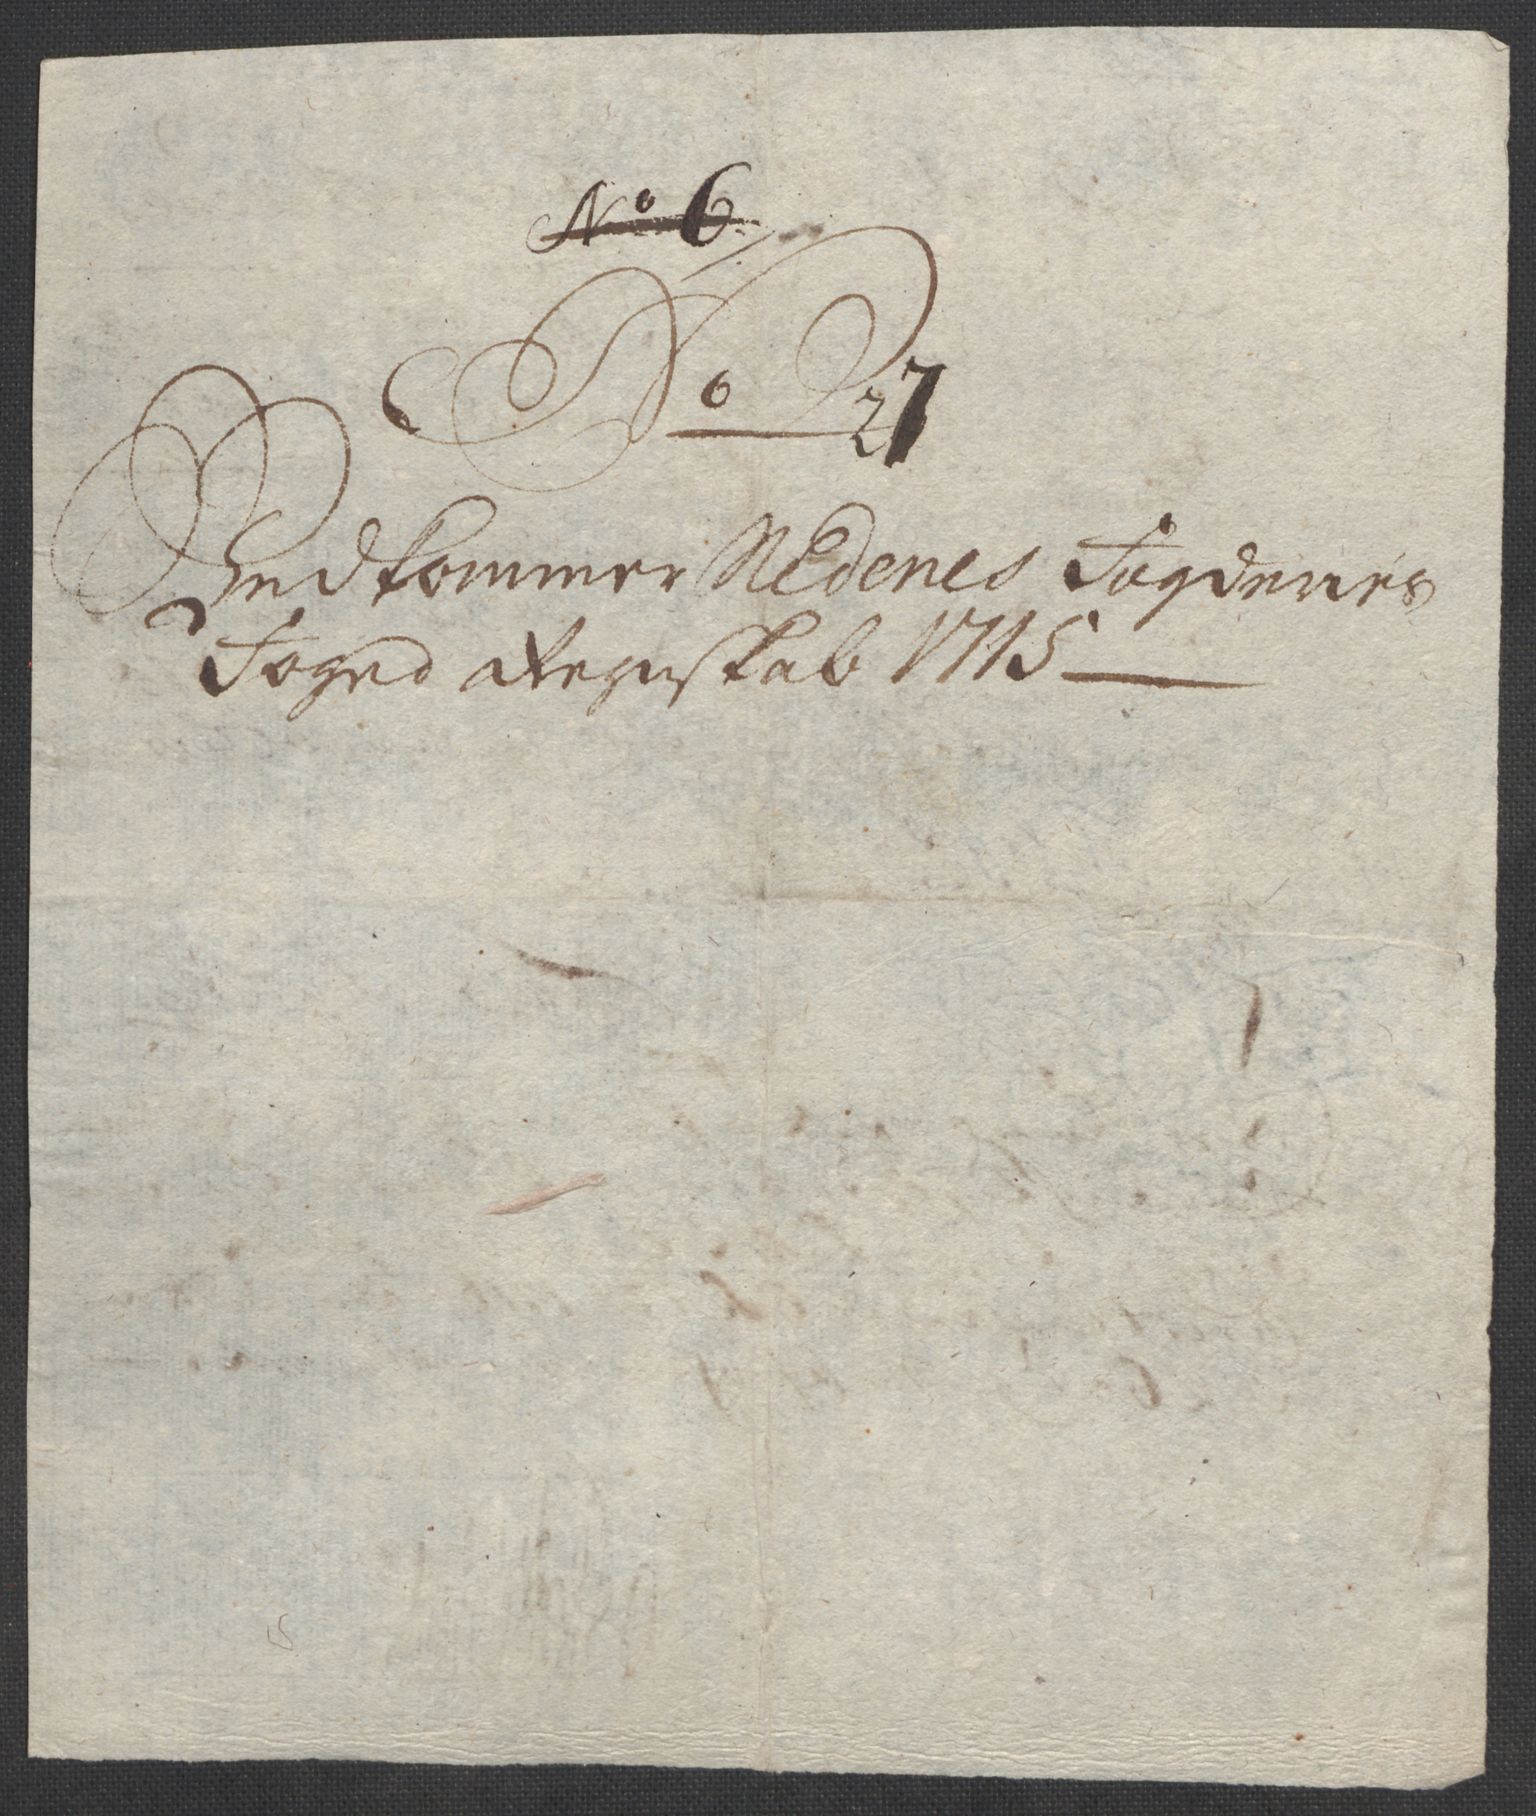 No 6
No 27
Vedkommer Nedenes Fogderies
Foged Regnskab 1715